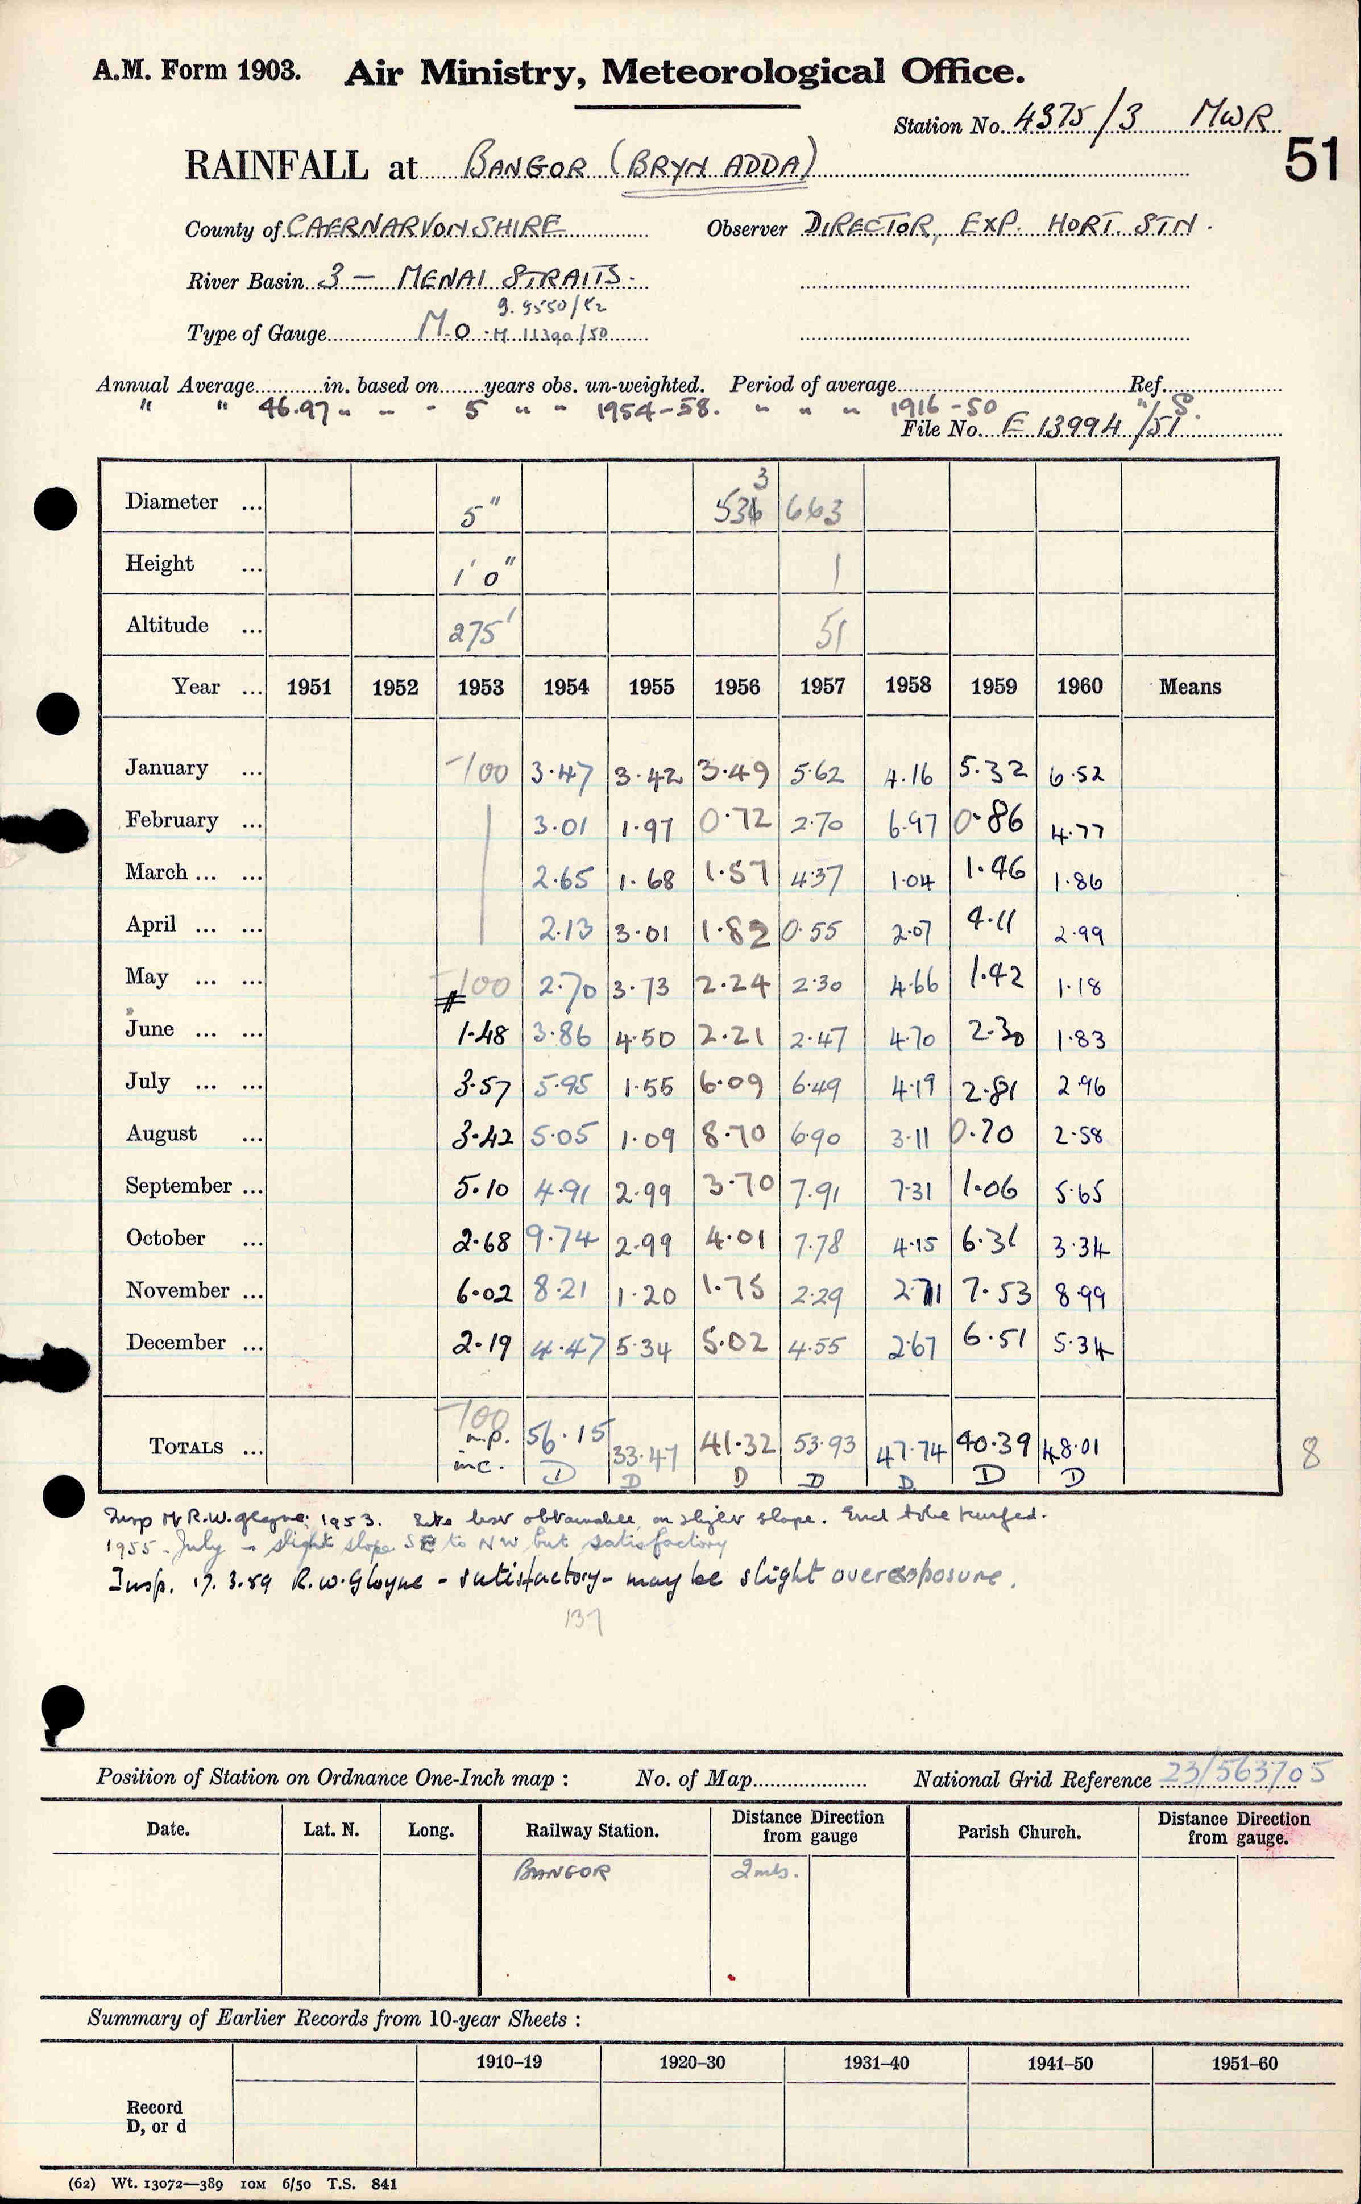 A.M. Form 1903. Air Ministry, Meteorological Office.
Station No. 4375/3 MWR
51
RAINFALL at BANGOR (BRYN ADDA)
County of CAERNARVONSHIRE Observer DIRECTOR, EXP. HORT STN.
River Basin 3 — MENAI STRAITS.
Type of Gauge M.O.
Annual Average in. based on years obs. un-weighted. Period of average Ref.
" " 46.97 " - - - 5 " " - 1954-58. " " " 1916-50
File No. E 13994/51
Diameter ... 5" 663
Height ... 1' 0" 1
Altitude ... 275' 51
Year ... 1951 1952 1953 1954 1955 1956 1957 1958 1959 1960 Means
January ... -100 3.47 3.42 3.49 5.62 4.16 5.32 6.52
February ... 3.01 1.97 0.72 2.70 6.97 0.86 4.77
March ... ... 2.65 1.68 1.57 4.37 1.04 1.46 1.86
April ... ... 2.13 3.01 1.82 0.55 2.07 4.11 2.99
May ... ... -100 2.70 3.73 2.24 2.30 4.66 1.42 1.18
June ... ... # 1.48 3.86 4.50 2.21 2.47 4.70 2.30 1.83
July ... ... 3.57 5.95 1.55 6.09 6.49 4.19 2.81 2.96
August ... 3.42 5.05 1.09 8.70 6.90 3.11 0.70 2.58
September ... 5.10 4.91 2.99 3.70 7.91 7.31 1.06 5.65
October ... 2.68 9.74 2.99 4.01 7.78 4.15 6.31 3.34
November ... 6.02 8.21 1.20 1.75 2.29 2.71 7.53 8.99
December ... 2.19 4.47 5.34 5.02 4.55 2.67 6.51 5.34
TOTALS ... -100 n.p. inc. 56.15 33.47 41.32 53.93 47.74 40.39 48.01 8
D D D D D D D
Insp Mr R.W. Gloyne 1953. Site best obtainable, on slight slope. End to be turfed.
1955 - July - slight slope SE to NW but satisfactory
Insp. 17.3.59 R.W. Gloyne - satisfactory - may be slight overexposure.
137
Position of Station on Ordnance One-Inch map : No. of Map National Grid Reference 23/563705
Date. Lat. N. Long. Railway Station. Distance Direction from gauge Parish Church. Distance Direction from gauge.
BANGOR 2 mls.
Summary of Earlier Records from 10-year Sheets :
1910–19 1920–30 1931–40 1941–50 1951–60
Record
D, or d
(62) Wt. 13072—389 10M 6/50 T.S. 841